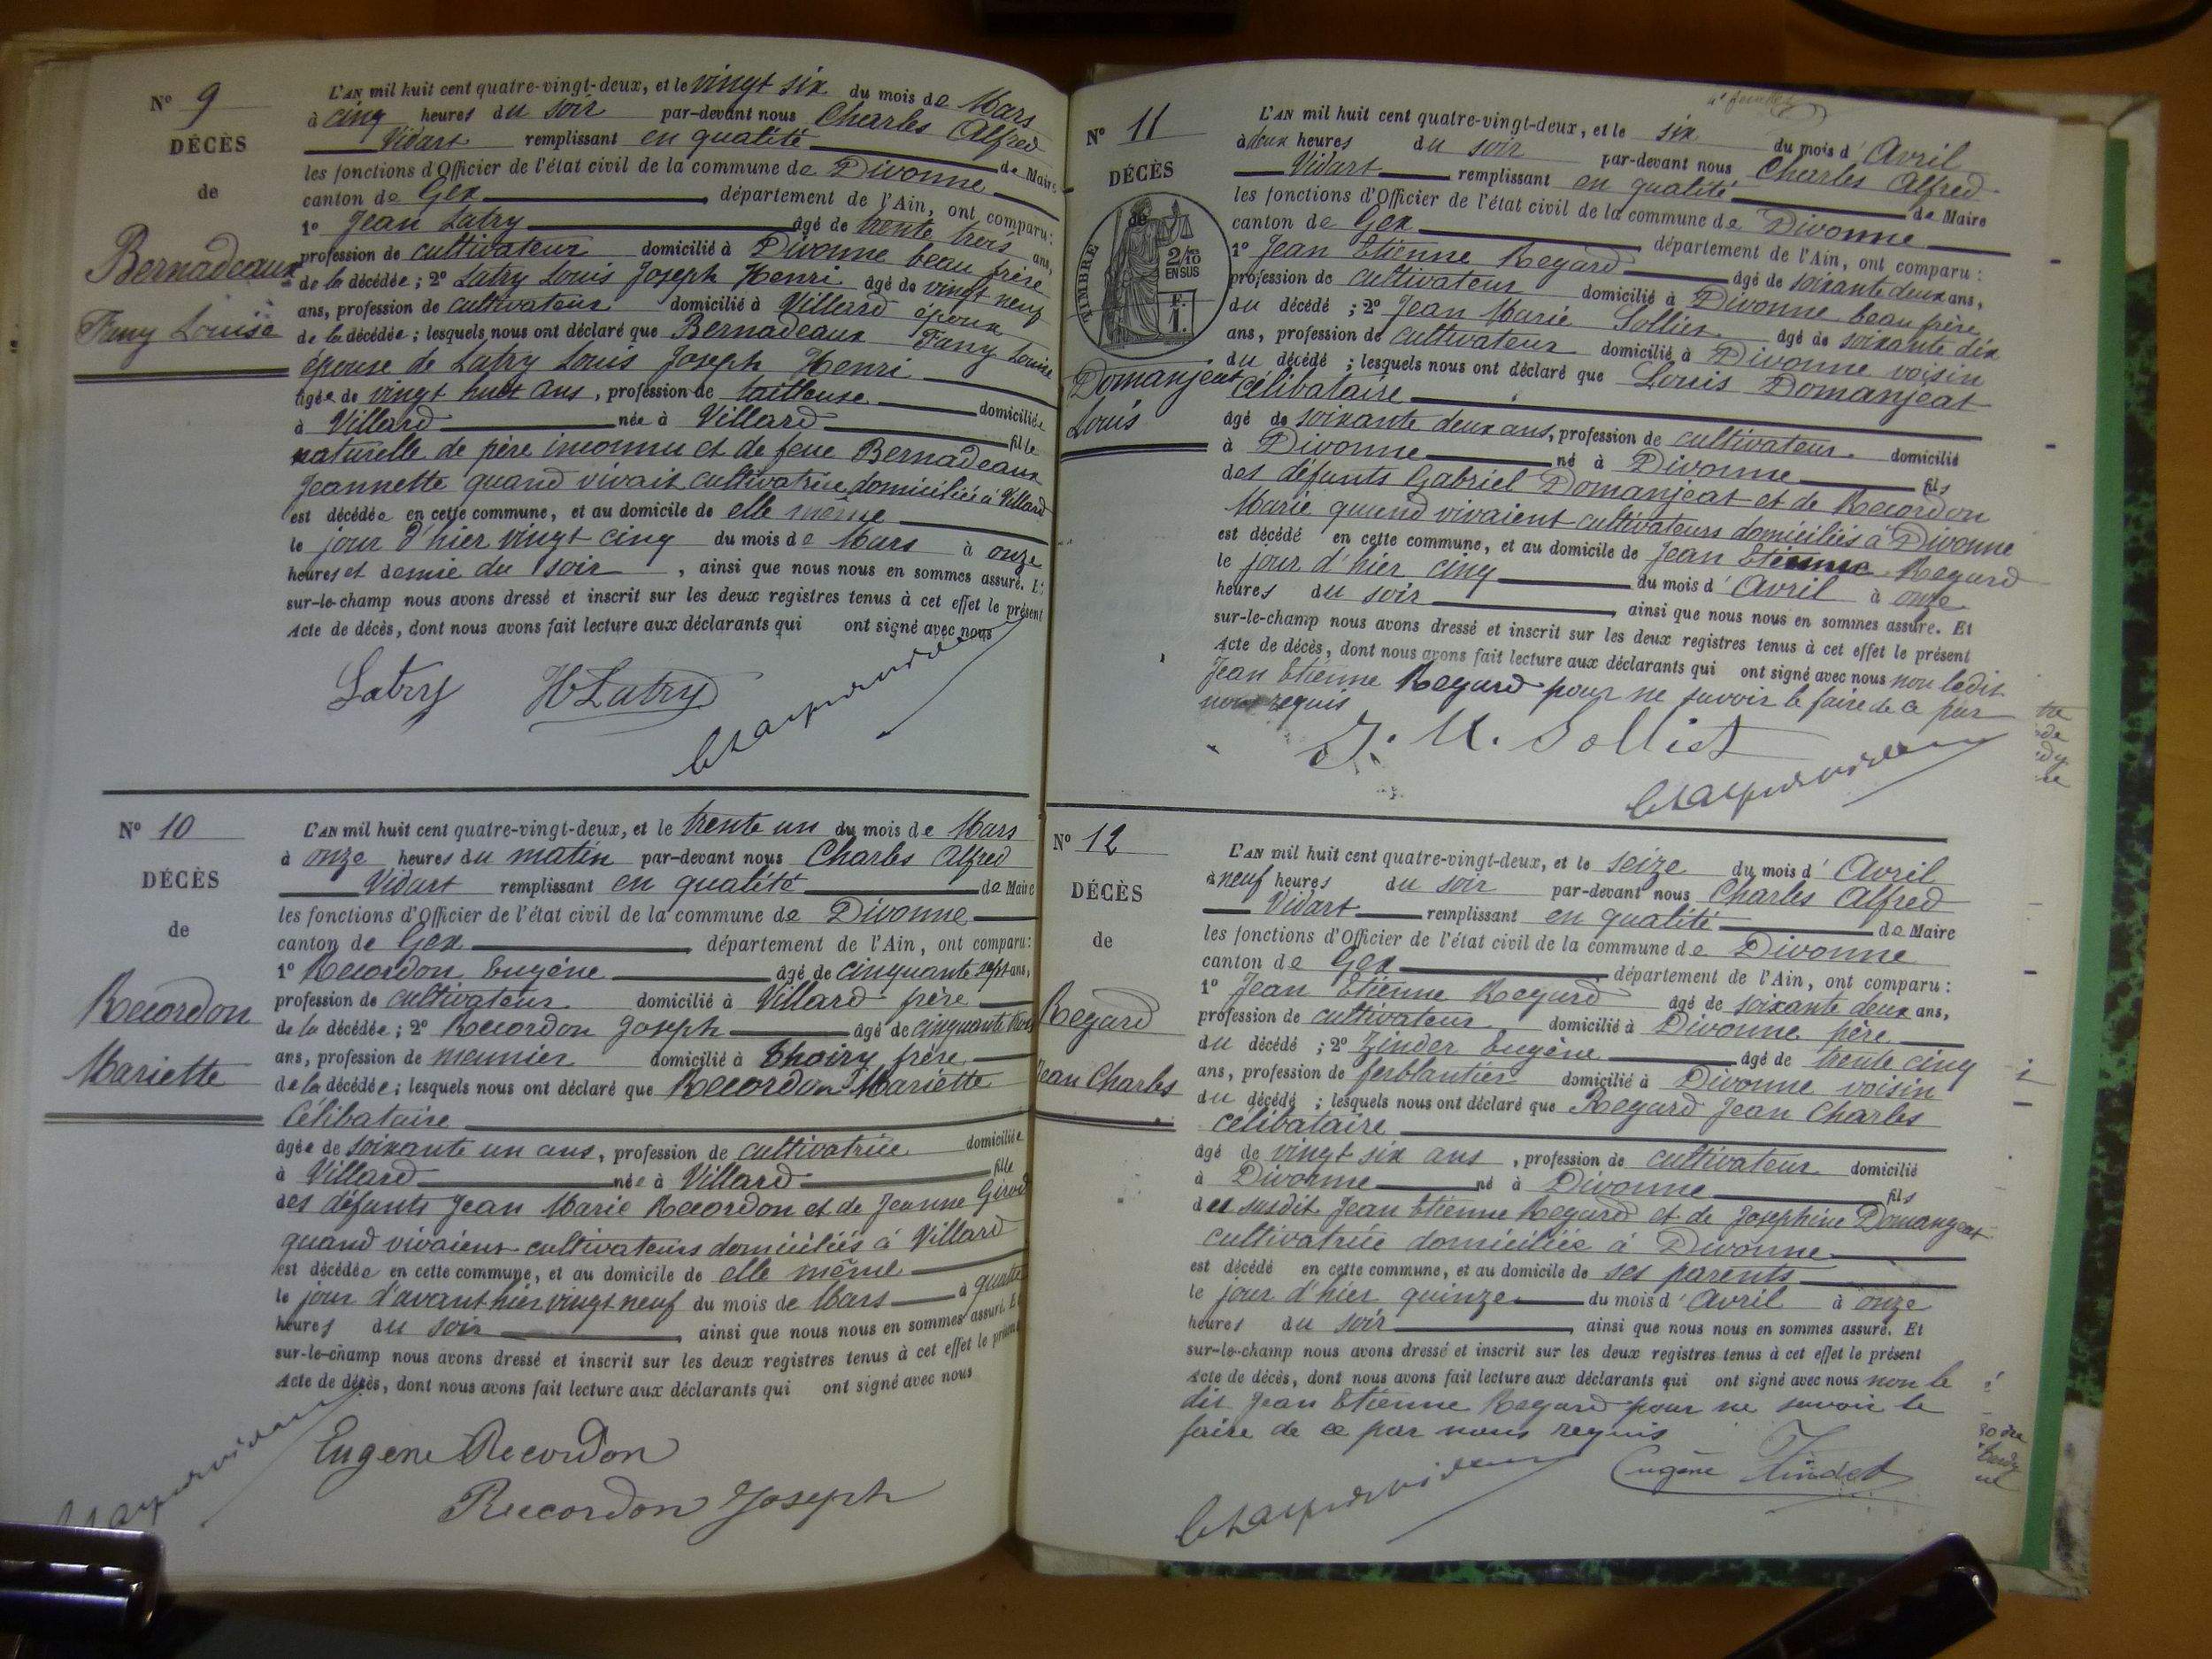 N° 9
DÉCÈS
de
Bernadeaux
Fany Louise
L'AN mil huit cent quatre-vingt-deux, et le vingt six du mois de Mars
à cinq heures du soir par-devant nous Charles Alfred
Vidart remplissant en qualité de Maire
les fonctions d'Officier de l'état civil de la commune de Divonne
canton de Gex, département de l'Ain, ont comparu :
1° Jean Latry âgé de trente trois ans,
profession de cultivateur domicilié à Divonne beau frère
de la décédée ; 2° Latry Louis Joseph Henri âgé de vingt neuf
ans, profession de cultivateur domicilié à Villard époux
de la décédée ; lesquels nous ont déclaré que Bernadeaux Fany Louise
épouse de Latry Louis Joseph Henri
âgée de vingt huit ans, profession de tailleuse domiciliée
à Villard née à Villard fille
naturelle de père inconnu et de feue Bernadeaux
Jeannette quand vivait cultivatrice domiciliée à Villard
est décédée en cette commune, et au domicile de elle même
le jour d'hier vingt cinq du mois de Mars à onze
heures et demie du soir, ainsi que nous nous en sommes assuré. Et
sur-le-champ nous avons dressé et inscrit sur les deux registres tenus à cet effet le présent
Acte de décès, dont nous avons fait lecture aux déclarants qui ont signé avec nous
Latry H Latry
N° 10
DÉCÈS
de
Recordon
Mariette
L'AN mil huit cent quatre-vingt-deux, et le trente un du mois de Mars
à onze heures du matin par-devant nous Charles Alfred
Vidart remplissant en qualité de Maire
les fonctions d'Officier de l'état civil de la commune de Divonne
canton de Gex, département de l'Ain, ont comparu :
1° Recordon Eugène âgé de cinquante sept ans,
profession de cultivateur domicilié à Villard frère
de la décédée ; 2° Recordon Joseph âgé de cinquante trois
ans, profession de meunier domicilié à Thoiry frère
de la décédée ; lesquels nous ont déclaré que Recordon Mariette
Célibataire
âgée de soixante un ans, profession de cultivatrice domiciliée
à Villard née à Villard fille
des défunts Jean Marie Recordon et de Jeanne Girod
quand vivaient cultivateurs domiciliés à Villard
est décédée en cette commune, et au domicile de elle même
le jour d'avant hier vingt neuf du mois de Mars à quatre
heures du soir, ainsi que nous nous en sommes assuré. Et
sur-le-champ nous avons dressé et inscrit sur les deux registres tenus à cet effet le présent
Acte de décès, dont nous avons fait lecture aux déclarants qui ont signé avec nous
Eugene Recordon
Recordon Joseph
N° 11
DÉCÈS
de
TIMBRE
2/10
EN SUS
F.
1.
Domanjeat
Louis
L'AN mil huit cent quatre-vingt-deux, et le six du mois d'Avril
à deux heures du soir par-devant nous Charles Alfred
Vidart remplissant en qualité de Maire
les fonctions d'Officier de l'état civil de la commune de Divonne
canton de Gex département de l'Ain, ont comparu :
1° Jean Etienne Regard âgé de soixante deux ans,
profession de cultivateur domicilié à Divonne beau frère
du décédé ; 2° Jean Marie Sollier âgé de soixante dix
ans, profession de cultivateur domicilié à Divonne voisin
du décédé ; lesquels nous ont déclaré que Louis Domanjeat
célibataire
âgé de soixante deux ans, profession de cultivateur domicilié
à Divonne né à Divonne fils
des défunts Gabriel Domanjeat et de Recordon
Marie quand vivaient cultivateurs domiciliés à Divonne
est décédé en cette commune, et au domicile de Jean Etienne Regard
le jour d'hier cinq du mois d'Avril à onze
heures du soir, ainsi que nous nous en sommes assuré. Et
sur-le-champ nous avons dressé et inscrit sur les deux registres tenus à cet effet le présent
Acte de décès, dont nous avons fait lecture aux déclarants qui ont signé avec nous non ledit
Jean Etienne Regard pour ne savoir le faire de ce par
nous requis
N° 12
DÉCÈS
de
Regard
Jean Charles
L'AN mil huit cent quatre-vingt-deux, et le seize du mois d'Avril
à neuf heures du soir par-devant nous Charles Alfred
Vidart remplissant en qualité de Maire
les fonctions d'Officier de l'état civil de la commune de Divonne
canton de Gex département de l'Ain, ont comparu :
1° Jean Etienne Regard âgé de soixante deux ans,
profession de cultivateur domicilié à Divonne père
du décédé ; 2° Zinder Eugène âgé de trente cinq
ans, profession de ferblantier domicilié à Divonne voisin
du décédé ; lesquels nous ont déclaré que Regard Jean Charles
célibataire
âgé de vingt six ans, profession de cultivateur domicilié
à Divonne né à Divonne fils
des susdit Jean Etienne Regard et de Josephine Domangeat
cultivatrice domiciliée à Divonne
est décédé en cette commune, et au domicile de ses parents
le jour d'hier quinze du mois d'Avril à onze
heures du soir, ainsi que nous nous en sommes assuré. Et
sur-le-champ nous avons dressé et inscrit sur les deux registres tenus à cet effet le présent
Acte de décès, dont nous avons fait lecture aux déclarants qui ont signé avec nous non le
dit Jean Etienne Regard pour ne savoir le
faire de ce par nous requis
Eugène